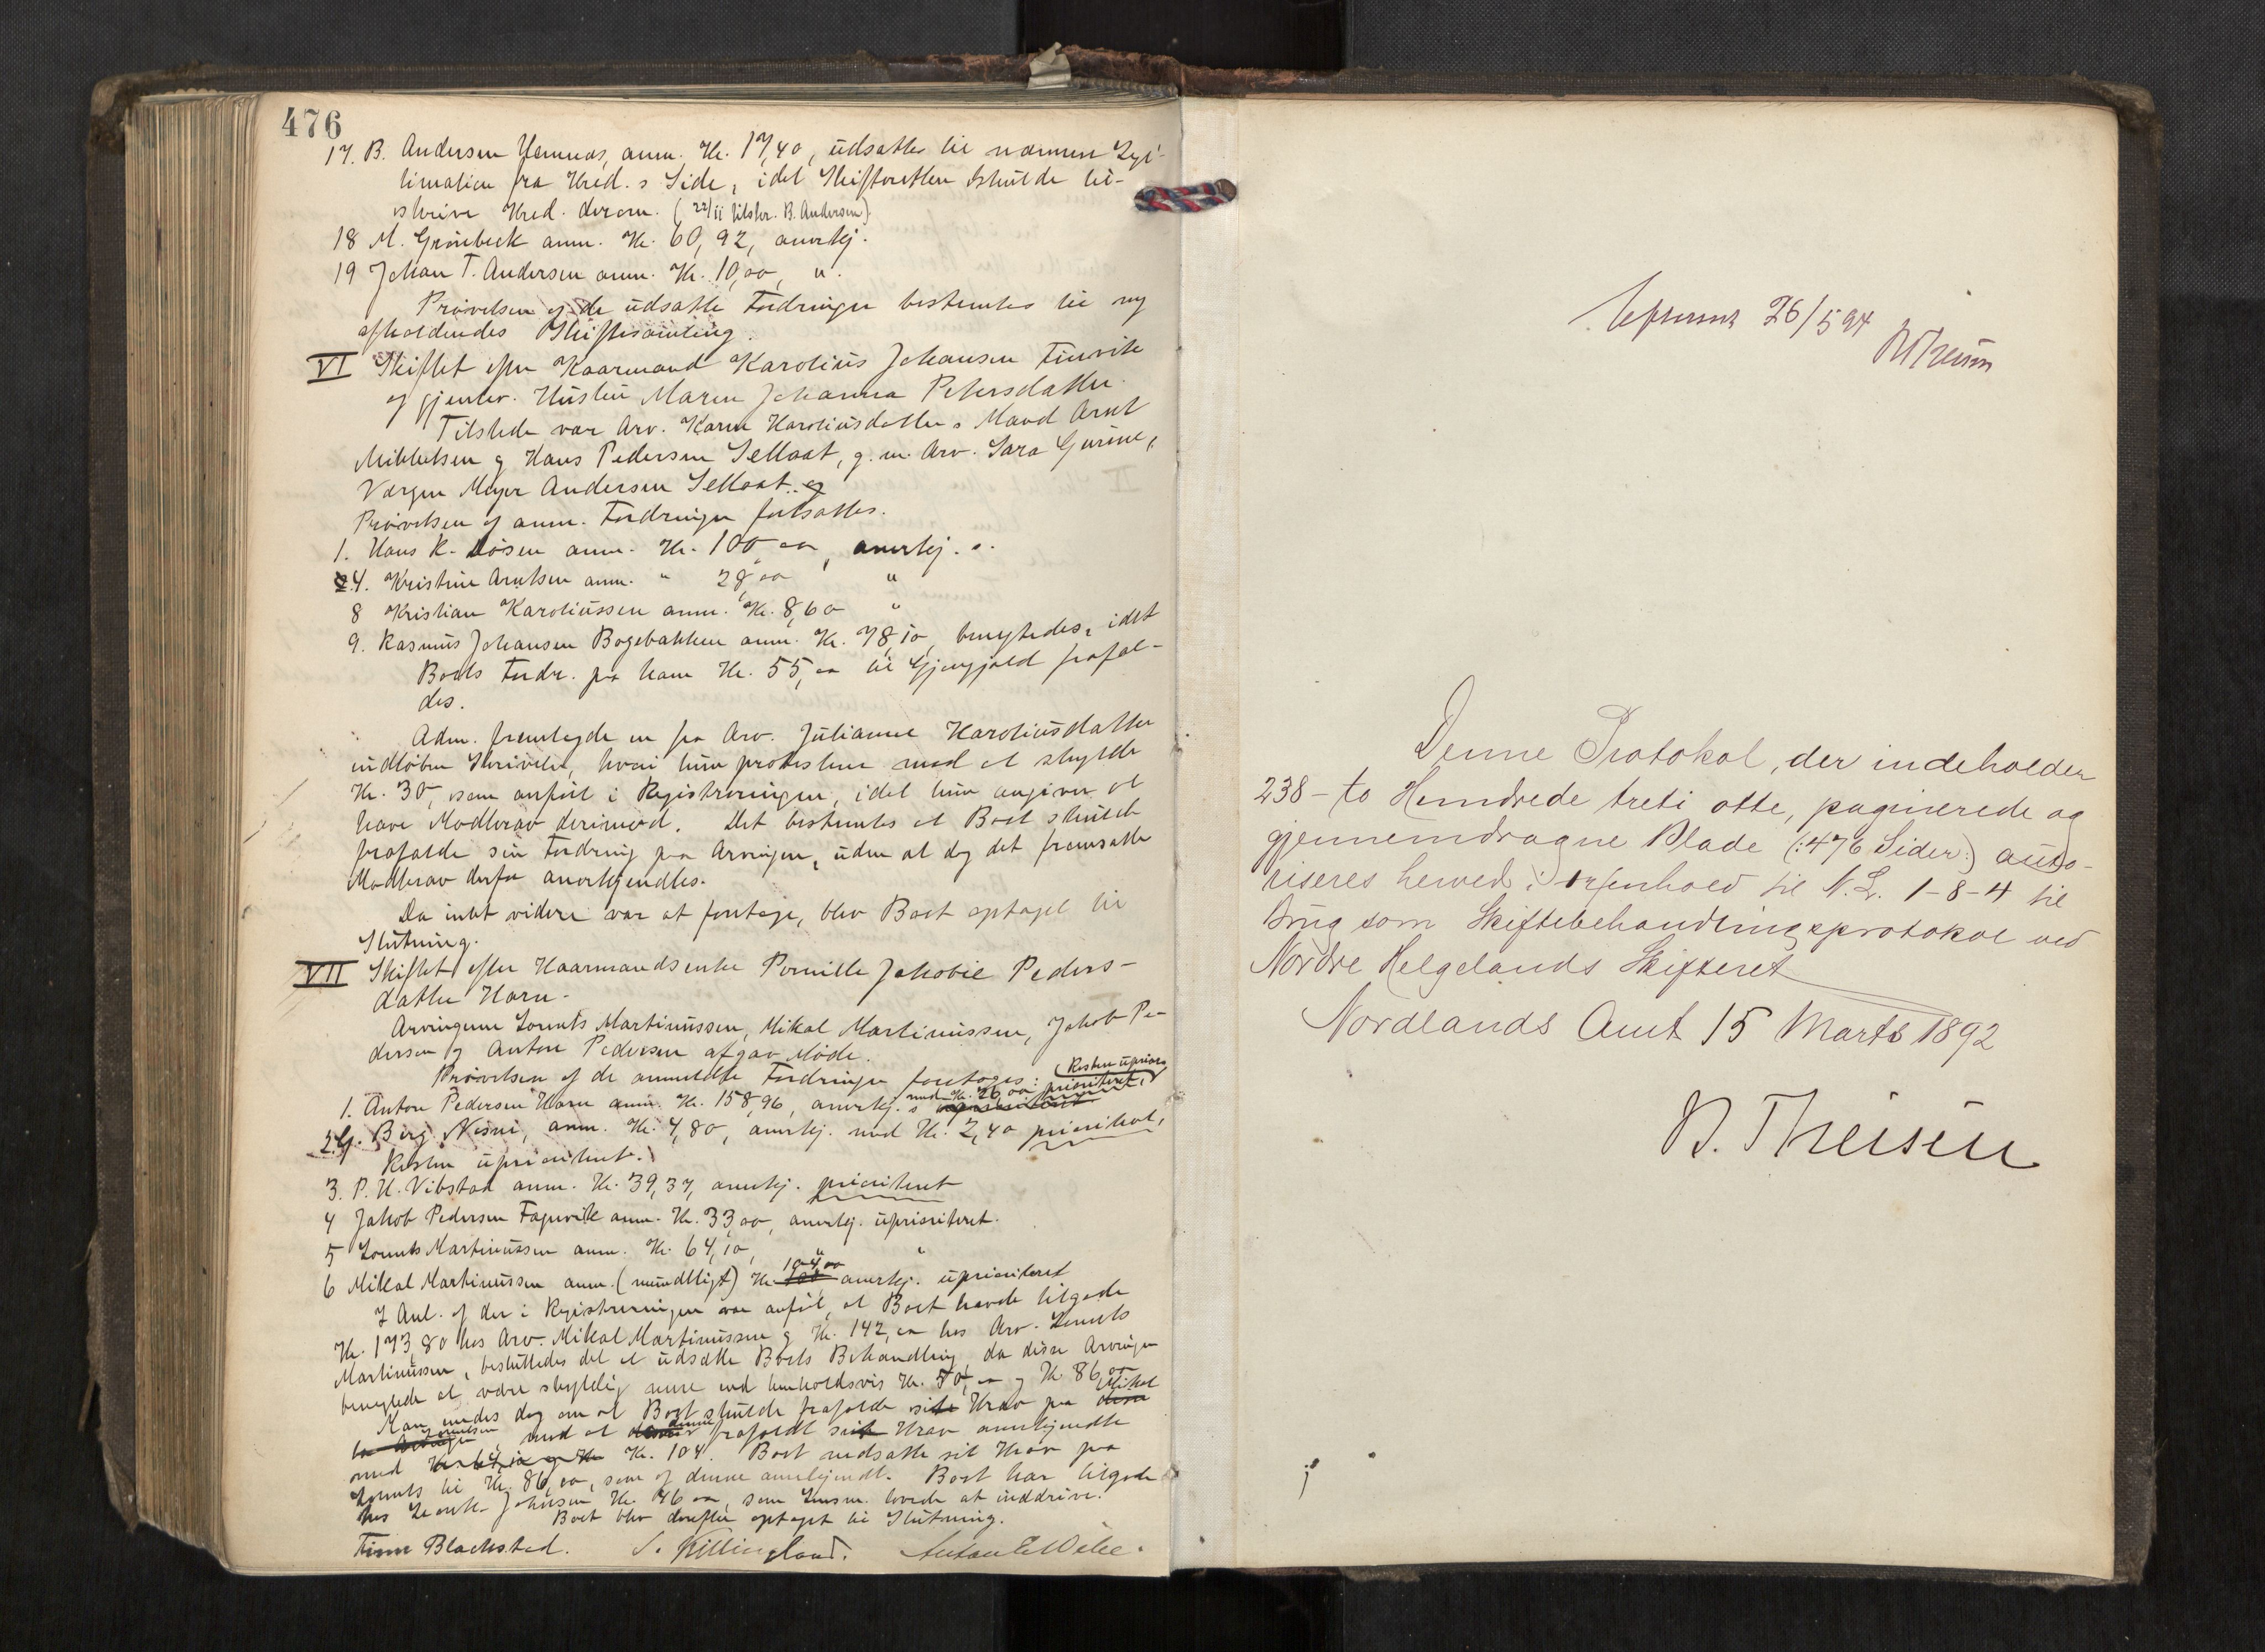 476
17. B. Andersen Hemnes, anm. Kr. 17,40, udsattes til nærmere Legi-
timation fra Kred.s Side, idet Skifteretten skulde til-
skrive Kred. derom. (22/11 tilskr. B. Andersen)
18 M. Grønbeck anm. Kr. 60,92, anerkj.
19 Johan T. Andersen anm. Kr. 10,00, "
Prøvelsen af de udsatte Fordringer bestemtes til ny
afholdendes Skiftesamling.
VI Skiftet efter Kaarmand Karolius Johansen Finvik
og gjenlev. Hustru Maren Johanna Petersdatter.
Tilstede var Arv. Karen Karoliusdatters Mand Arnt
Mikkelsen og Hans Pedersen Selfoat, g. m. Arv. Sara Gurine,
Værgen Meyer Andersen Selfoat.
Prøvelsen af anm. Fordringer fortsattes.
1. Hans K. Døsen anm. Kr. 100,00, anerkj.
4. Kristine Arntsen anm. " 28,00 "
8 Kristian Karoliussen anm. Kr. 8,60 "
9. Rasmus Johansen Bogebakken anm. Kr. 78,10, benegtedes, idet
Boets Fordr. på ham Kr. 55,00 til Gjengjæld frafal-
des.
Adm. fremlagde en fra Arv. Julianne Karoliusdatter
indløben Skrivelse, hvori hun protesterer mod at skylde
Kr. 30, som anført i Registreringen, idet hun angiver at
have Modkrav derimod. Det bestemtes at Boet skulde
frafalde sin Fordring paa Arvingen, uden at dog det fremsatte
Modkrav derfor anerkjendtes.
Da intet videre var at foretage, blev Boet optaget til
Slutning.
VII Skiftet efter Kaarmandsenke Pernille Jakobie Peders-
datter Horn.
Arvingerne Lorents Martinussen, Mikal Martinussen, Jakob Pe-
dersen og Anton Pedersen afgav Møde.
Prøvelsen af de anmeldte Fordringer foretoges:
(Resten uprior.)
1. Anton Pedersen Horn anm. Kr. 158,96, anerkj. med Kr. 26,00 prioriteret,
2. Birg. Nesni, anm. Kr. 4,80, anerkj. med Kr. 2,40 prioriteret,
Resten uprioriteret.
3. P. H. Vibstad anm. Kr. 39,37, anerkj. prioriteret
4 Jakob Pedersen Fagervik anm. Kr. 33,00, anerkj. uprioriteret.
5 Lorents Martinussen anm. Kr. 64,10, " "
6 Mikal Martinussen anm. (mundtligt) Kr. 104,00 anerkj. uprioriteret
I Anl. af der i Registreringen var anført, at Boet havde tilgode
Kr. 173,80 hos Arv. Mikal Martinussen og Kr. 142,00 hos Arv. Lorents
Martinussen, besluttedes det at udsætte Boets Behandling, da disse Arvinger
benegtede at være skyldig mere end henholdsvis Kr. 50,00 og Kr. 86,00
Man enedes dog om at Boet skulde frafalde sit Krav paa Mikal
mod at denne frafaldt sit Krav anerkjendte
med Kr. 104. Boet nedsatte sit Krav paa
Lorents til Kr. 86,00, som af denne anerkjendt. Boet har tilgode
hos Johnsen Kr. 46,00, som Lensm. lovede at inddrive.
Boet blev derefter optaget til Slutning.
Finn Blackstad. S. Killingland.
26/5 94
BTheisen
Denne Protokol, der indeholder
238 - to Hundrede treti otte, paginerede og
gjennemdragne Blade (: 476 Sider :) auto-
riseres herved i Henhold til N. L. 1-8-4 til
Brug som Skiftebehandlingsprotokol ved
Nordre Helgelands Skifteret
Nordlands Amt 15 Marts 1892
B. Theisen